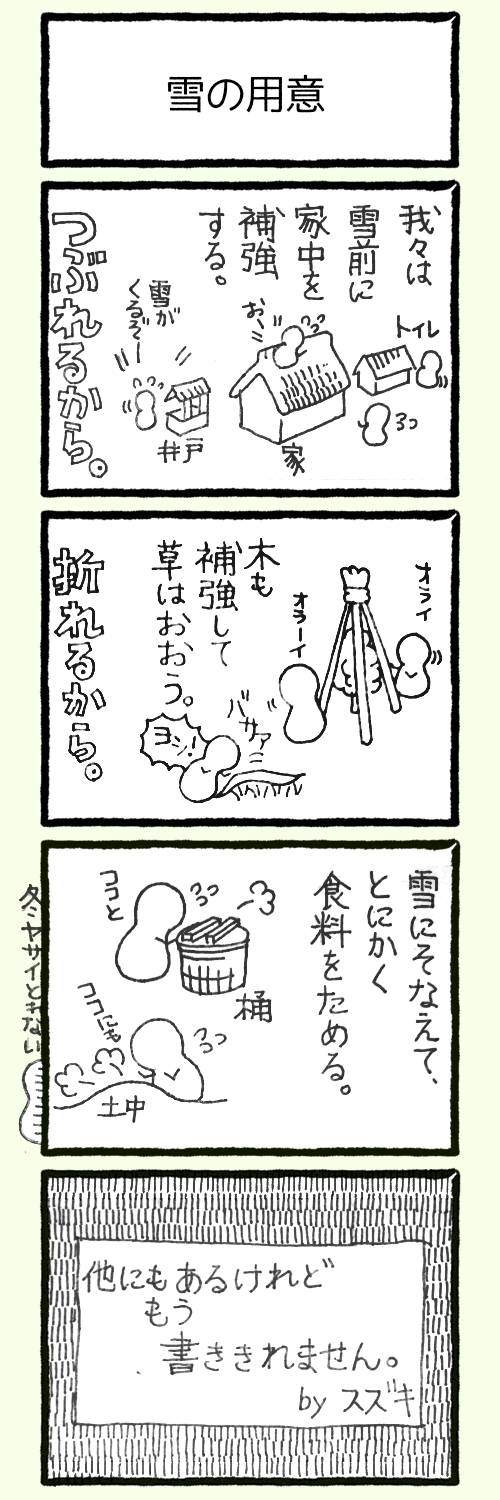 雪の用意
我々は
雪前に
家中を
補強
する。
トイレ
お、
家
雪が
くるぞー
井戸
つぶれるから。
オライ
オラーイ
木も
補強して
草はおおう。
バサァ
ヨシ!
折れるから。
雪にそなえて、
とにかく
食料をためる。
桶
ココと
ココにも
土中
冬ヤサイときない
他にもあるけれど
もう
書ききれません。
by スズキ